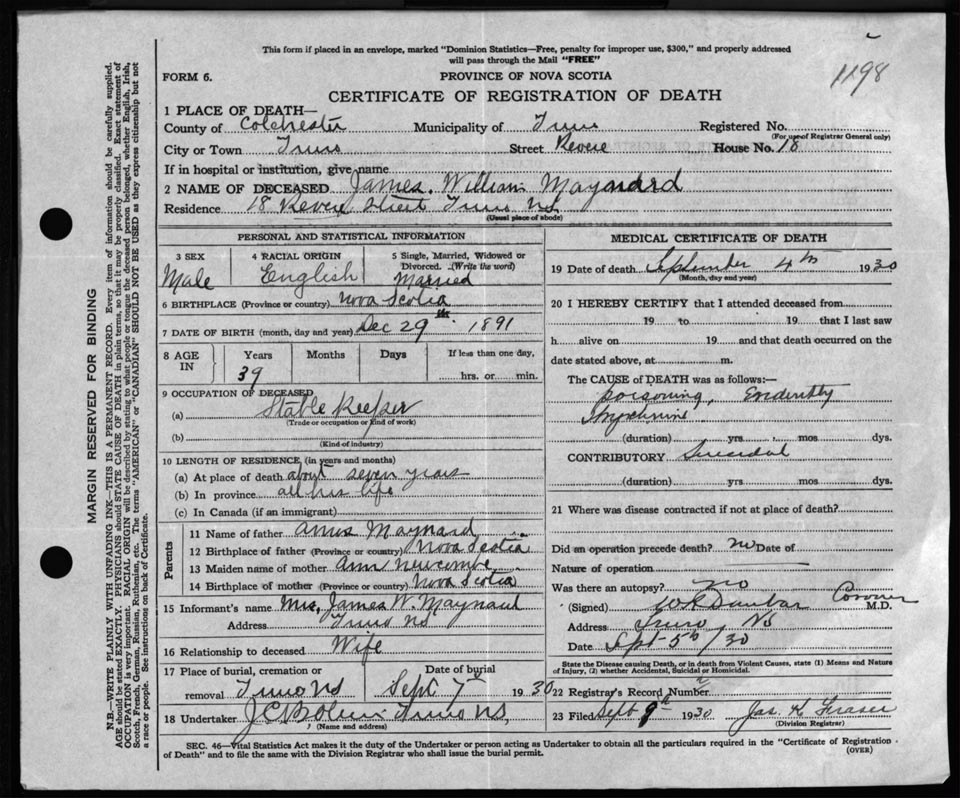 This form if placed in an envelope, marked "Dominion Statistics—Free, penalty for improper use, $300," and properly addressed
will pass through the Mail "FREE"
1198
FORM 6.
PROVINCE OF NOVA SCOTIA
CERTIFICATE OF REGISTRATION OF DEATH
1 PLACE OF DEATH—
County of Colchester Municipality of Truro Registered No.
(For use of Registrar General only)
City or Town Truro Street Revere House No. 18
If in hospital or institution, give name
2 NAME OF DECEASED James. William Maynard
Residence 18 Revere Street Truro NS
(Usual place of abode)
PERSONAL AND STATISTICAL INFORMATION
3 SEX 4 RACIAL ORIGIN 5 Single, Married, Widowed or
Divorced. (Write the word)
Male English Married
6 BIRTHPLACE (Province or country) Nova Scotia
7 DATE OF BIRTH (month, day and year) Dec 29th 1891
8 AGE IN Years Months Days If less than one day,
39 hrs. or min.
9 OCCUPATION OF DECEASED
(a) Stable Keeper
(Trade or occupation or kind of work)
(b)
(Kind of industry)
10 LENGTH OF RESIDENCE (in years and months)
(a) At place of death about seven years
(b) In province all his life
(c) In Canada (if an immigrant)
Parents
11 Name of father Amos Maynard
12 Birthplace of father (Province or country) Nova Scotia
13 Maiden name of mother Ann Newcombe
14 Birthplace of mother (Province or country) Nova Scotia
15 Informant's name Mrs, James W. Maynard
Address Truro NS
16 Relationship to deceased Wife
17 Place of burial, cremation or Date of burial
removal Truro NS Sept 7th 1930
18 Undertaker Truro NS,
(Name and address)
MEDICAL CERTIFICATE OF DEATH
19 Date of death September 4th 1930
(Month, day and year)
20 I HEREBY CERTIFY that I attended deceased from
19 to 19 that I last saw
h alive on 19 and that death occurred on the
date stated above, at m.
The CAUSE of DEATH was as follows:—
poisoning, Evidently
Strychnine
(duration) yrs. mos dys.
CONTRIBUTORY Suicidal
(duration) yrs. mos dys.
21 Where was disease contracted if not at place of death?
Did an operation precede death? no Date of
Nature of operation
Was there an autopsy? no
(Signed) Dunbar Coroner M.D.
Address Truro NS
Date Sept 5th/30
State the Disease causing Death, or in death from Violent Causes, state (1) Means and Nature
of Injury, (2) whether Accidental, Suicidal or Homicidal.
22 Registrar's Record Number
23 Filed Sept 9th 1930 Jas. K. Fraser
(Division Registrar)
SEC. 46—Vital Statistics Act makes it the duty of the Undertaker or person acting as Undertaker to obtain all the particulars required in the "Certificate of Registration
of Death" and to file the same with the Division Registrar who shall issue the burial permit.
(OVER)
MARGIN RESERVED FOR BINDING
N.B.—WRITE PLAINLY WITH UNFADING INK—THIS IS A PERMANENT RECORD. Every item of information should be carefully supplied.
AGE should be stated EXACTLY. PHYSICIANS should STATE CAUSE OF DEATH in plain terms, so that it may be properly classified. Exact statement of
OCCUPATION is very important. RACIAL ORIGIN will be described by stating to what people or tongue the deceased person belonged, whether English, Irish,
Scotch, French, German, Russian, Ruthenian, etc. The terms "AMERICAN" or "CANADIAN" SHOULD NOT BE USED as they express citizenship but not
a race or people. See instructions on back of Certificate.